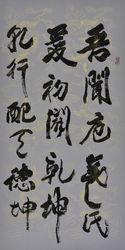 吾聞庖羲氏
爰初闢乾坤
乾行配天德坤